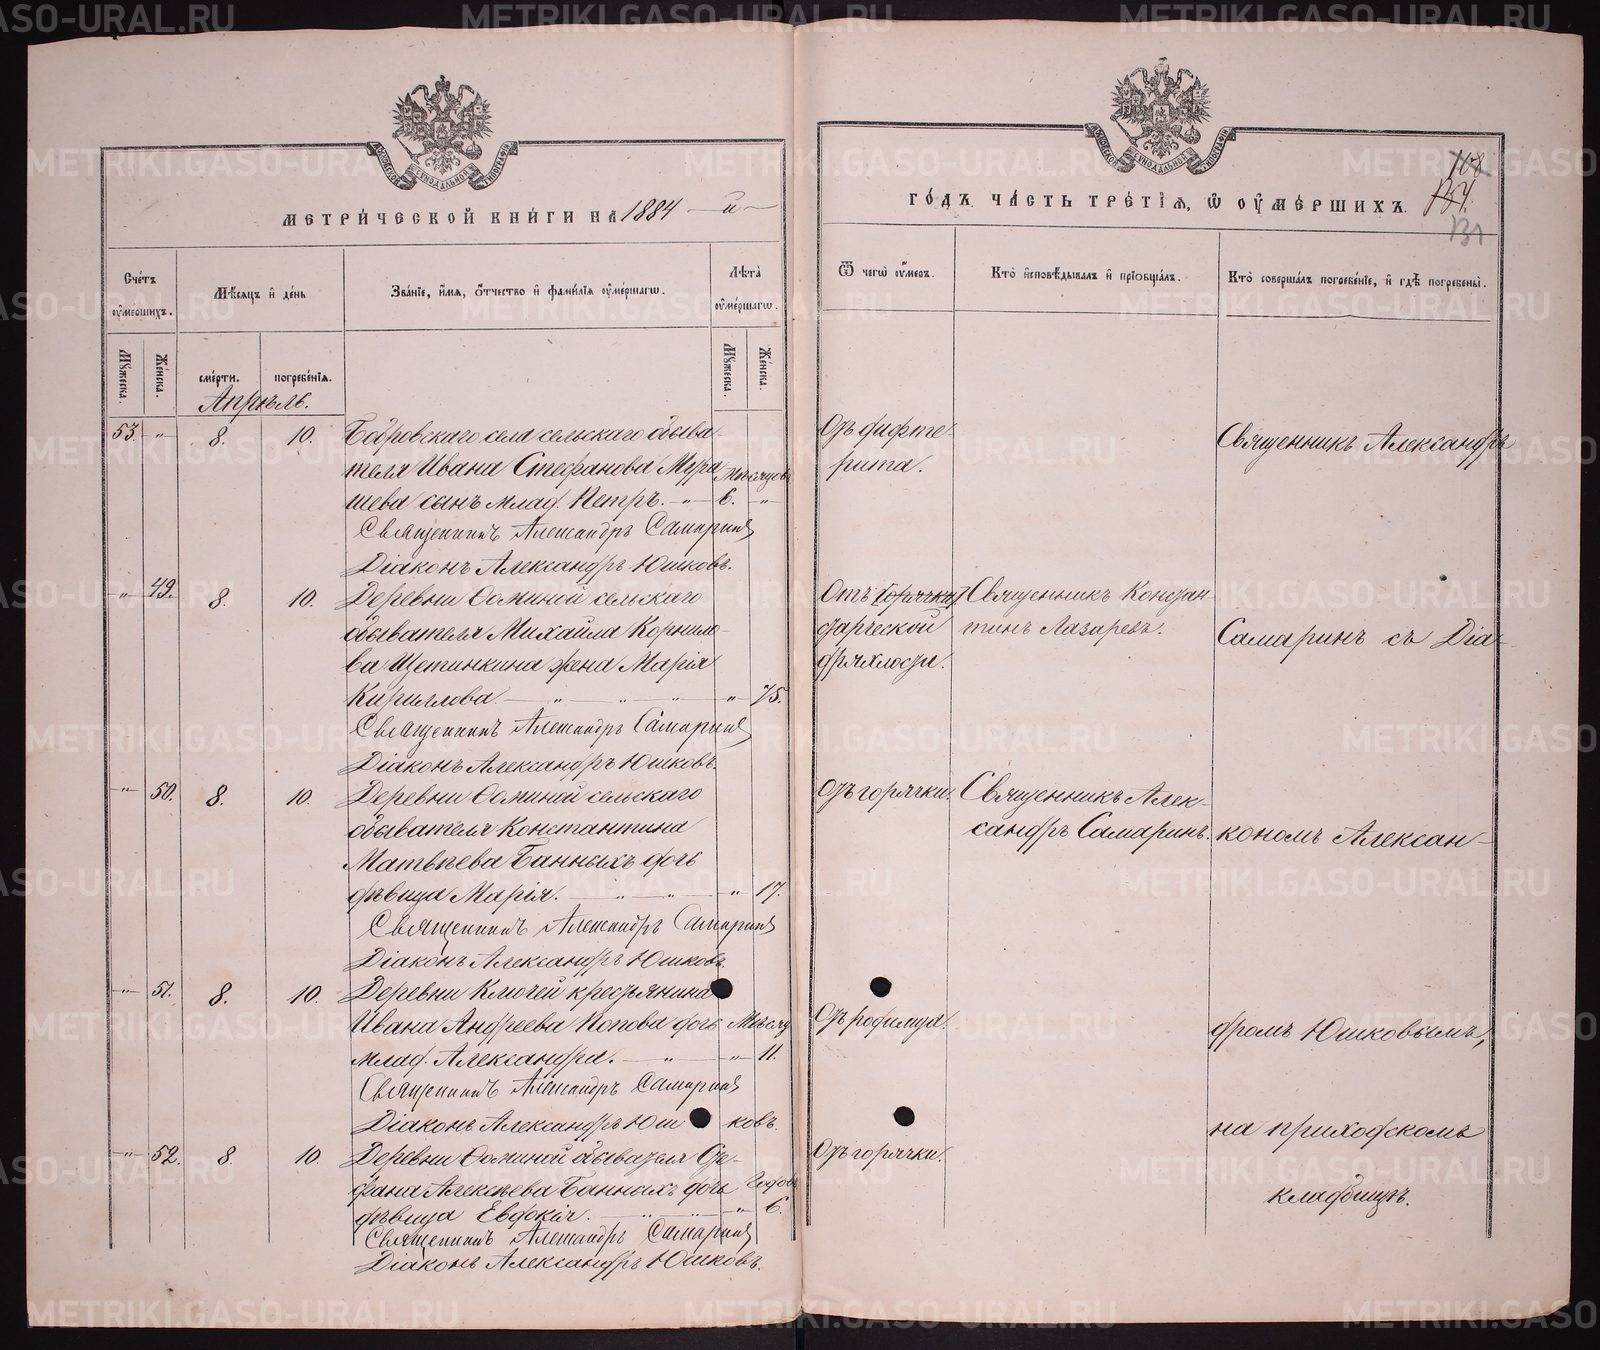 МЕТРИЧЕСКОЙ КНИГИ НА 1884 й
ГОДЪ ЧАСТЬ ТРЕТІЯ, Ѡ ОУМЕРШИХЪ.
108
134.
131
Счетъ оумершихъ.
Мѣсяцъ и день
Званіе, имя, отчество и фамилія оумершагѡ.
Лѣта оумершагѡ.
Ѿ чегѡ оумеръ.
Кто исповѣдывалъ и пріобщалъ.
Кто совершалъ погребеніе, и гдѣ погребены.
Мужеска.
Женска.
смерти.
погребенія.
Мужеска.
Женска.
Апрѣль.
53. " 8. 10. Бобровскаго села сельскаго обыва-
теля Ивана Стефанова Мура Мѣсяцовъ
шева сынъ млад. Петръ. " 6. "
Священникъ Александръ Самаринъ
Діаконъ Александръ Юшковъ.
Отъ дифте-
рита.
Священникъ Александръ
" 49. 8. 10. Деревни Ѳоминой сельскаго
обывателя Михаила Корнило-
ва Щетинкина жена Марія
Кириллова. " " " " 75.
Священникъ Александръ Самаринъ
Діаконъ Александръ Юшковъ.
Отъ [горячки]
старческой
дряхлости.
Священникъ Констан-
тинъ Лазаревъ.
Самаринъ съ Діа-
" 50. 8. 10. Деревни Ѳоминой сельскаго
обывателя Константина
Матвѣева Банныхъ дочь
дѣвица Марія. " " " 17.
Священникъ Александръ Самаринъ
Діаконъ Александръ Юшковъ.
Отъ горячки.
Священникъ Алек-
сандръ Самаринъ.
кономъ Алексан-
" 51. 8. 10. Деревни Ключей крестьянина
Ивана Андреева Попова дочь Мѣсяц
млад. Александра. " " 11.
Священникъ Александръ Самаринъ
Діаконъ Александръ Юшковъ.
Отъ родимца.
дромъ Юшковымъ,
на приходскомъ
" 52. 8. 10. Деревни Ѳоминой обывателя Сте-
фана Алексѣева Банныхъ дочь Годовъ
дѣвица Евдокія. " " " 6.
Священникъ Александръ Самаринъ
Діаконъ Александръ Юшковъ.
Отъ горячки.
кладбищѣ.
METRIKI.GASO-URAL.RU